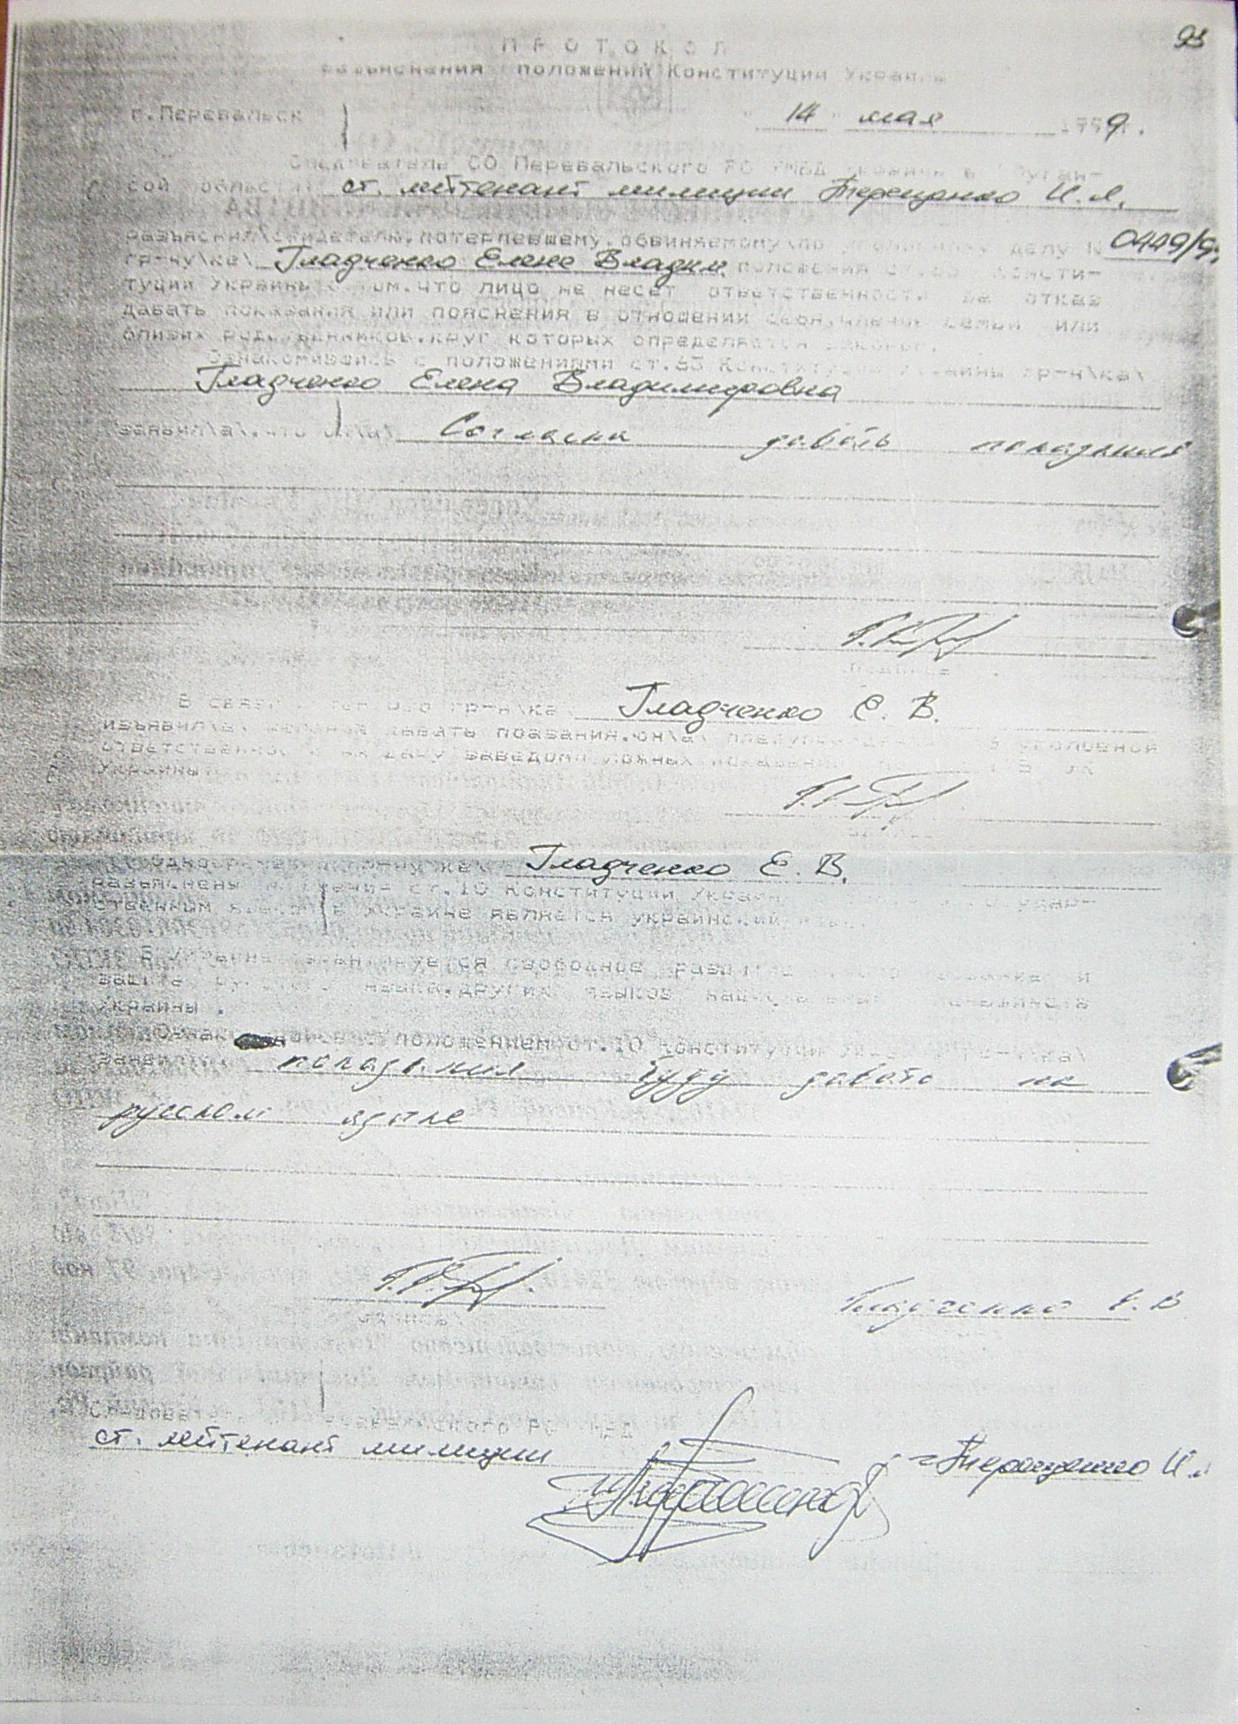 93
ПРОТОКОЛ
разъяснения положений Конституции Украины
г.Перевальск " 14 " мая 199 9г.
Следователь СО Перевальского РО УМВД Украины в Луган-
ской области ст. лейтенант милиции Терещенко И.Я.
разъяснил\свидетелю,потерпевшему,обвиняемому\по уголовному делу N 0449/9
гр-ну\ке\ Гладченко Елене Владим положения ст.63 Консти-
туции Украины о том,что лицо не несет ответственности за отказ
давать показания или пояснения в отношении себя,членов семьи или
близких родственников,круг которых определяется законом.
Ознакомившись с положениями ст.63 Конституции Украины гр-н\ка\
Гладченко Елена Владимировна
заявил\а\,что он\а\ Согласна давать показания
подпись
В связи с тем,что гр-н\ка Гладченко Е. В.
изъявил\а\ желание давать показания,он\а\ уголовной
ответственности за дачу заведомо ложных показаний УК
Украины
Гладченко Е. В.
разъяснены положения ст.10 Конституции Украины
ственным языком в Украине является украинский язык.
В Украине гарантируется свободное развитие и
защита русского языка,других языков национальных меньшинств
Украины.
с положением ст.10 Конституции Украины гр-н\ка\
заявил показания буду давать на
русском языке
подпись Гладченко Е. В
Следователь Перевальского РО УМВД
ст. лейтенант милиции Терещенко И.Я